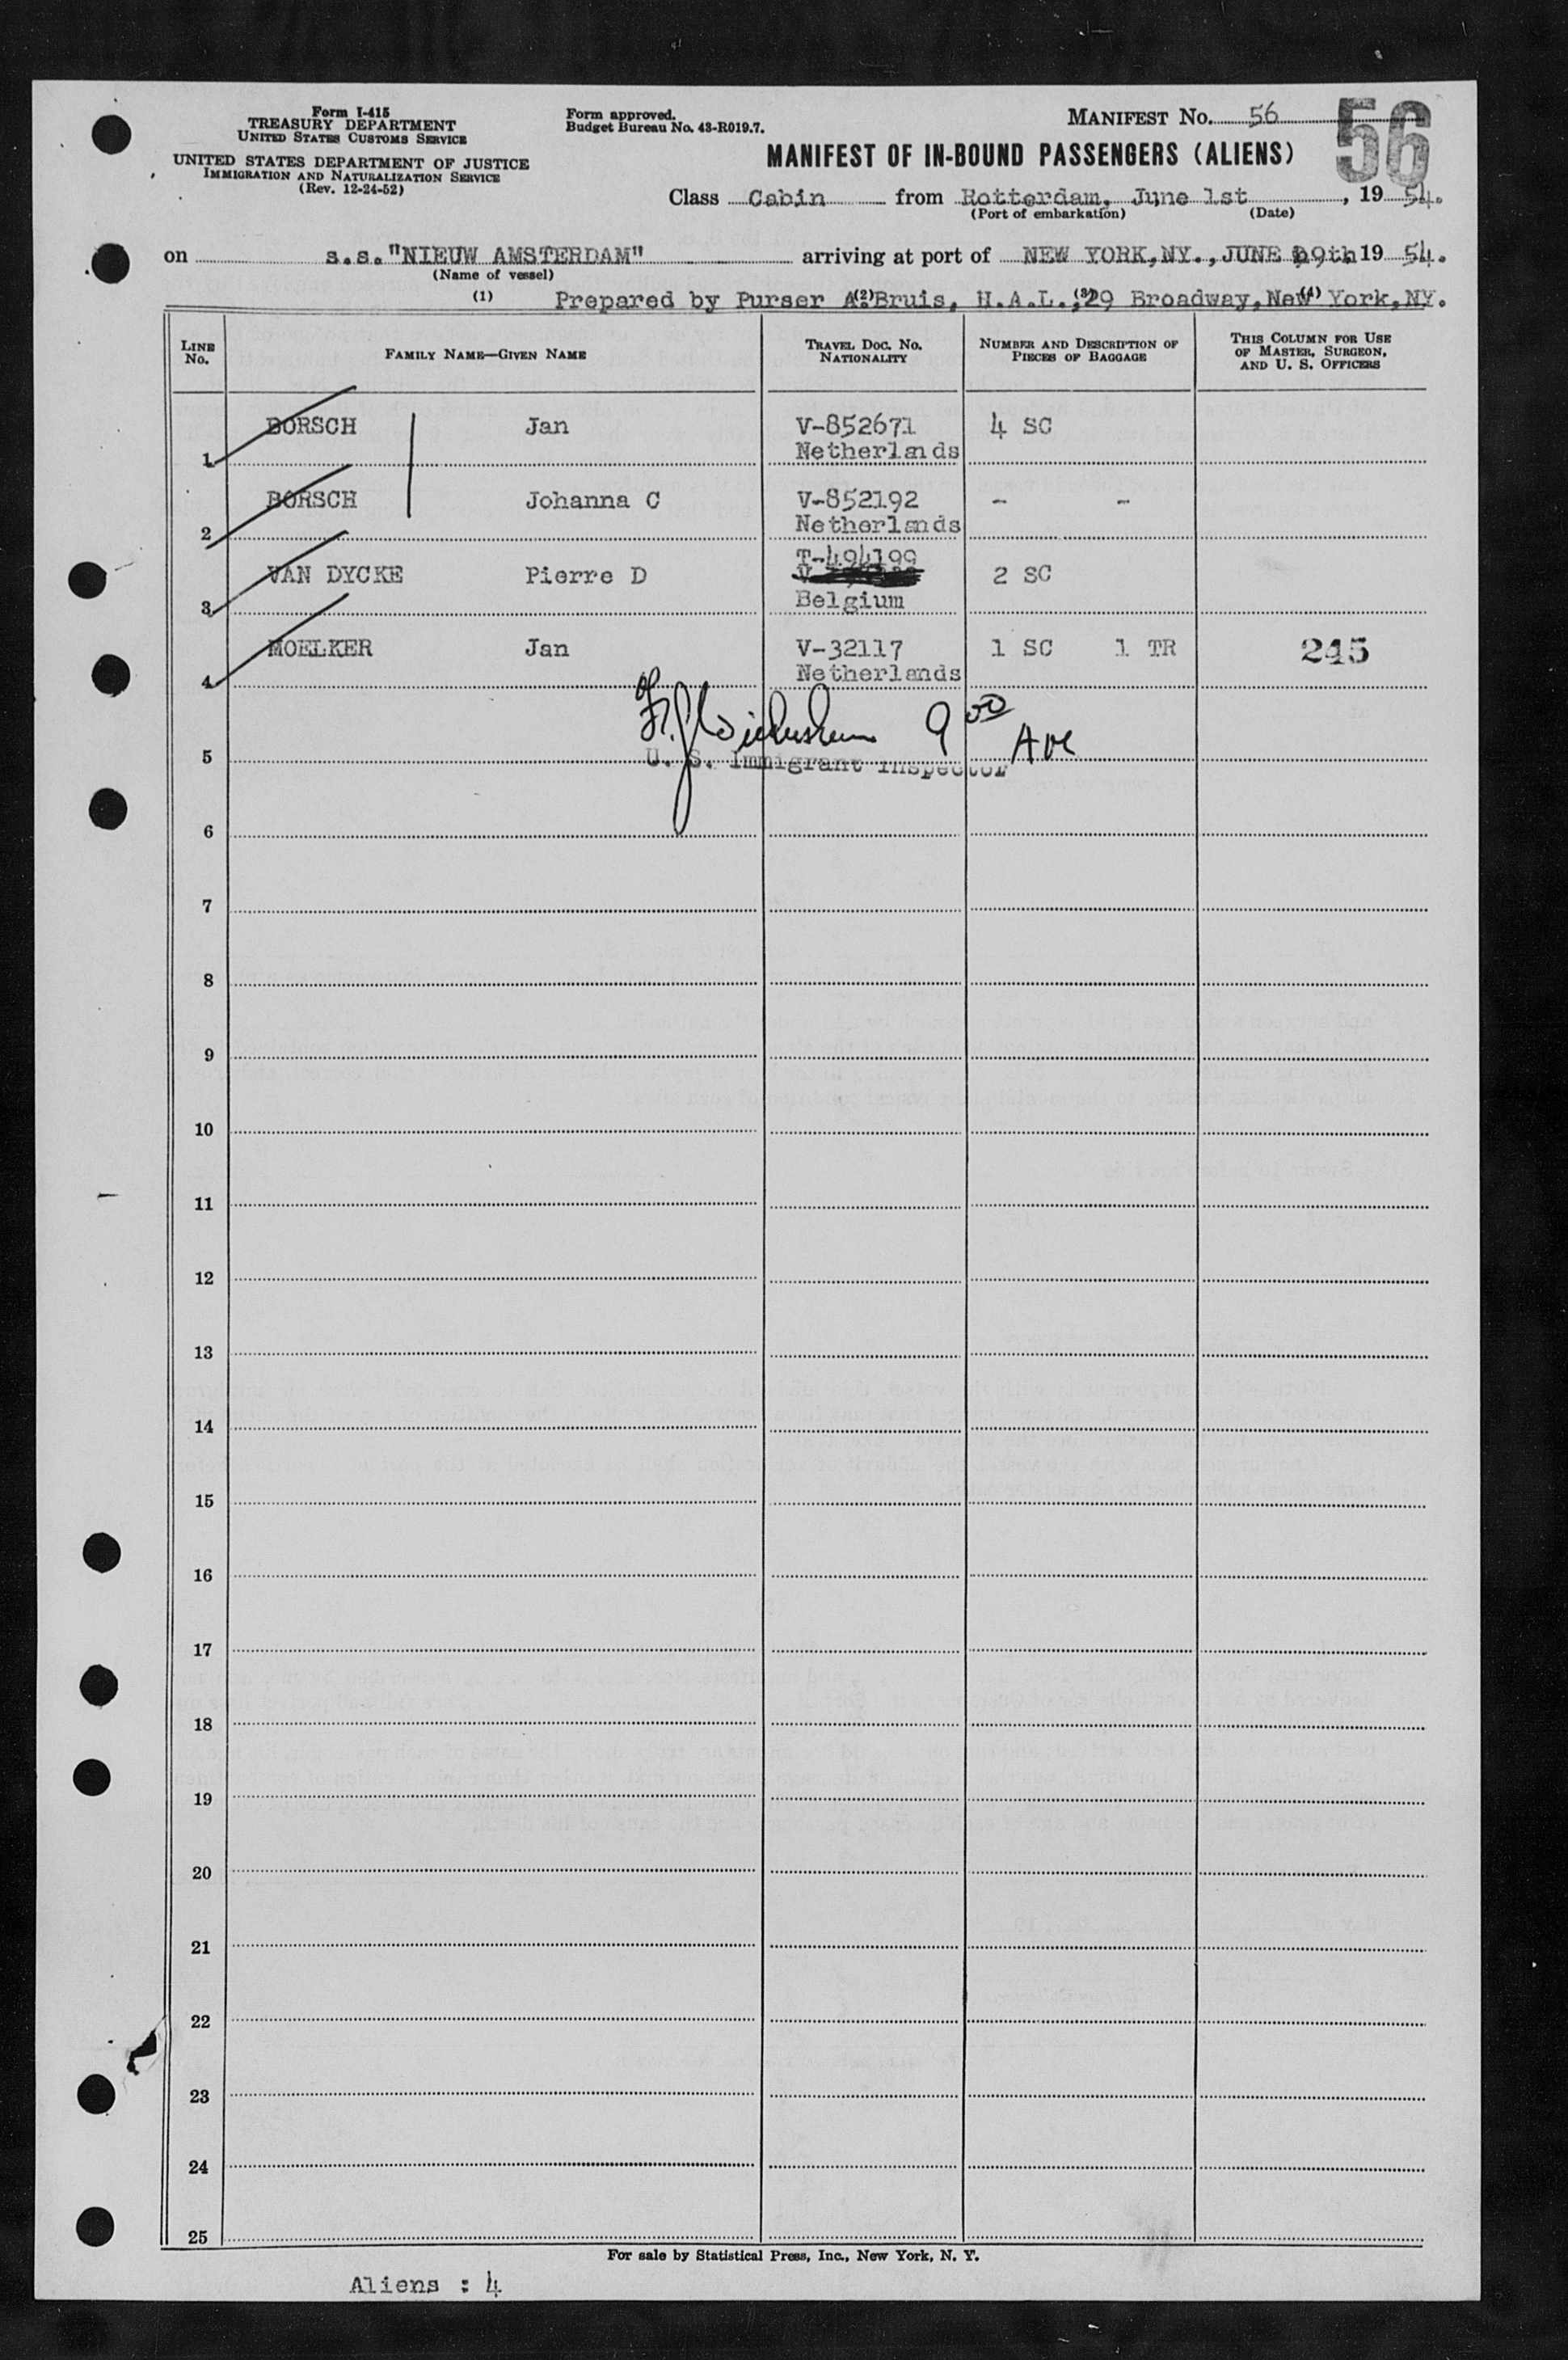 Form I-415
TREASURY DEPARTMENT
UNITED STATES CUSTOMS SERVICE
UNITED STATES DEPARTMENT OF JUSTICE
IMMIGRATION AND NATURALIZATION SERVICE
(Rev. 12-24-52)
Form approved.
Budget Bureau No. 43-R019.7.
MANIFEST No. 56
56
MANIFEST OF IN-BOUND PASSENGERS (ALIENS)
Class Cabin from Rotterdam, June 1st, 1954.
(Port of embarkation) (Date)
on s.s."NIEUW AMSTERDAM" arriving at port of NEW YORK,NY., JUNE 9th 1954.
(Name of vessel)
(1) (2) (3) (4)
Prepared by Purser A. Bruis, H.A.L., 29 Broadway, New York, NY.
LINE No. FAMILY NAME—GIVEN NAME TRAVEL DOC. NO. NATIONALITY NUMBER AND DESCRIPTION OF PIECES OF BAGGAGE THIS COLUMN FOR USE OF MASTER, SURGEON, AND U. S. OFFICERS
1 BORSCH Jan V-852671 4 SC
Netherlands
2 BORSCH Johanna C V-852192 - -
Netherlands
T-494199
3 VAN DYCKE Pierre D 2 SC
Belgium
4 MOELKER Jan V-32117 1 SC 1 TR 245
Netherlands
9 00
5 U. S. Immigrant Inspector
6
7
8
9
10
11
12
13
14
15
16
17
18
19
20
21
22
23
24
25
For sale by Statistical Press, Inc., New York, N. Y.
Aliens : 4